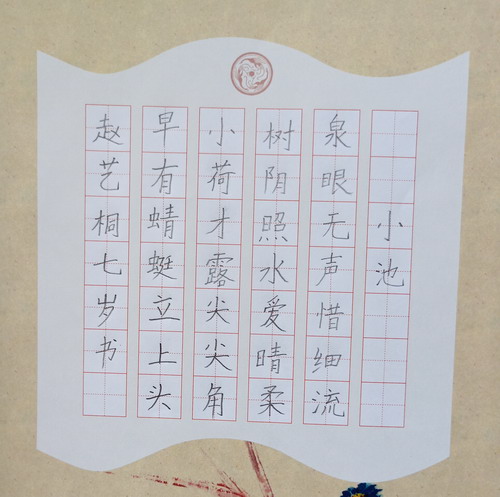 小池
泉眼无声惜细流
树阴照水爱晴柔
小荷才露尖尖角
早有蜻蜓立上头
赵艺桐七岁书